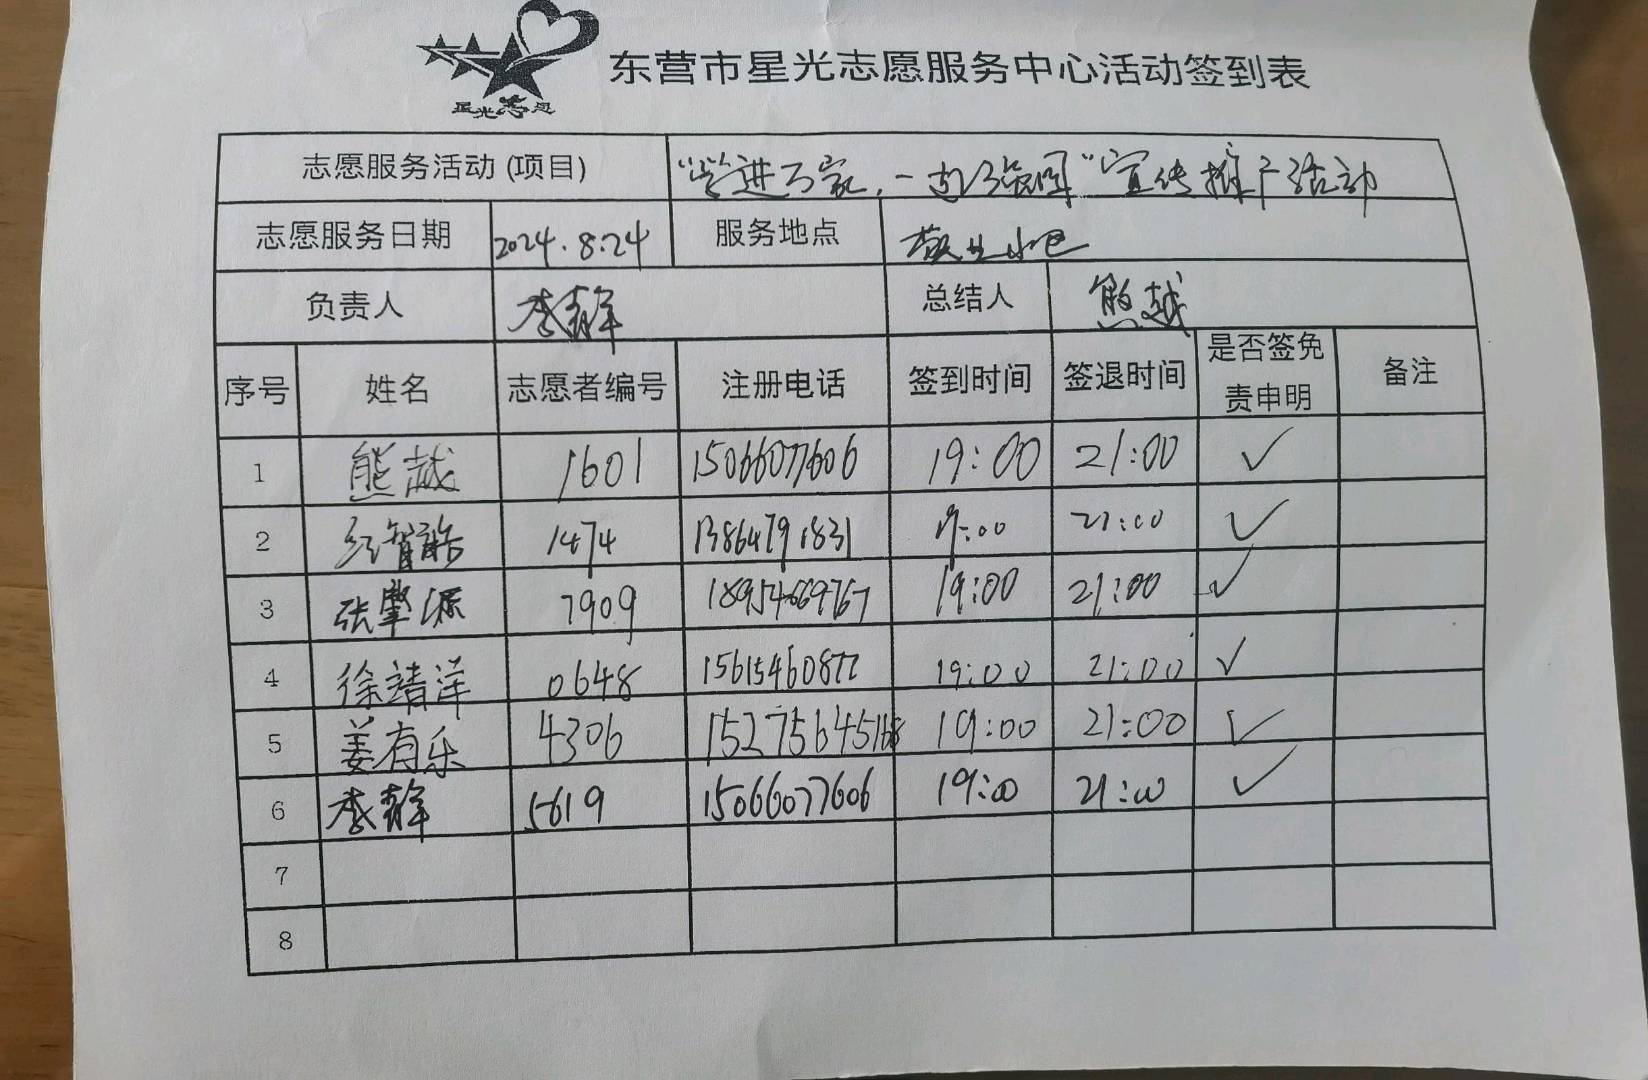 星光志愿
东营市星光志愿服务中心活动签到表
志愿服务活动(项目) “学进万家,一起强国”宣传推广活动
志愿服务日期 2024.8.24 服务地点
负责人 李静 总结人 熊越
序号 姓名 志愿者编号 注册电话 签到时间 签退时间 是否签免责申明 备注
1 熊越 1601 15066077606 19:00 21:00 ✓
2 1474 13864791831 19:00 21:00 ✓
3 张肇源 7909 18954669767 19:00 21:00 ✓
4 徐靖洋 0648 15615460877 19:00 21:00 ✓
5 姜有乐 4306 19:00 21:00 ✓
6 李静 5619 15066077606 19:00 21:00 ✓
7
8